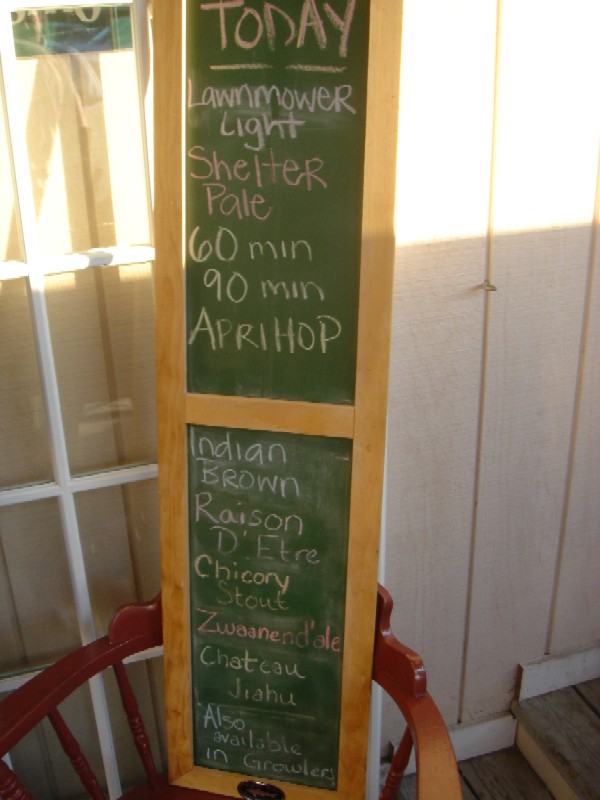 TODAY
Lawnmower
Light
Shelter
Pale
60 min
90 min
APRIHOP
Indian
BROWN
Raison
D'Etre
Chicory
Stout
Zwaanend'ale
Chateau
Jiahu
Also
available
in Growlers